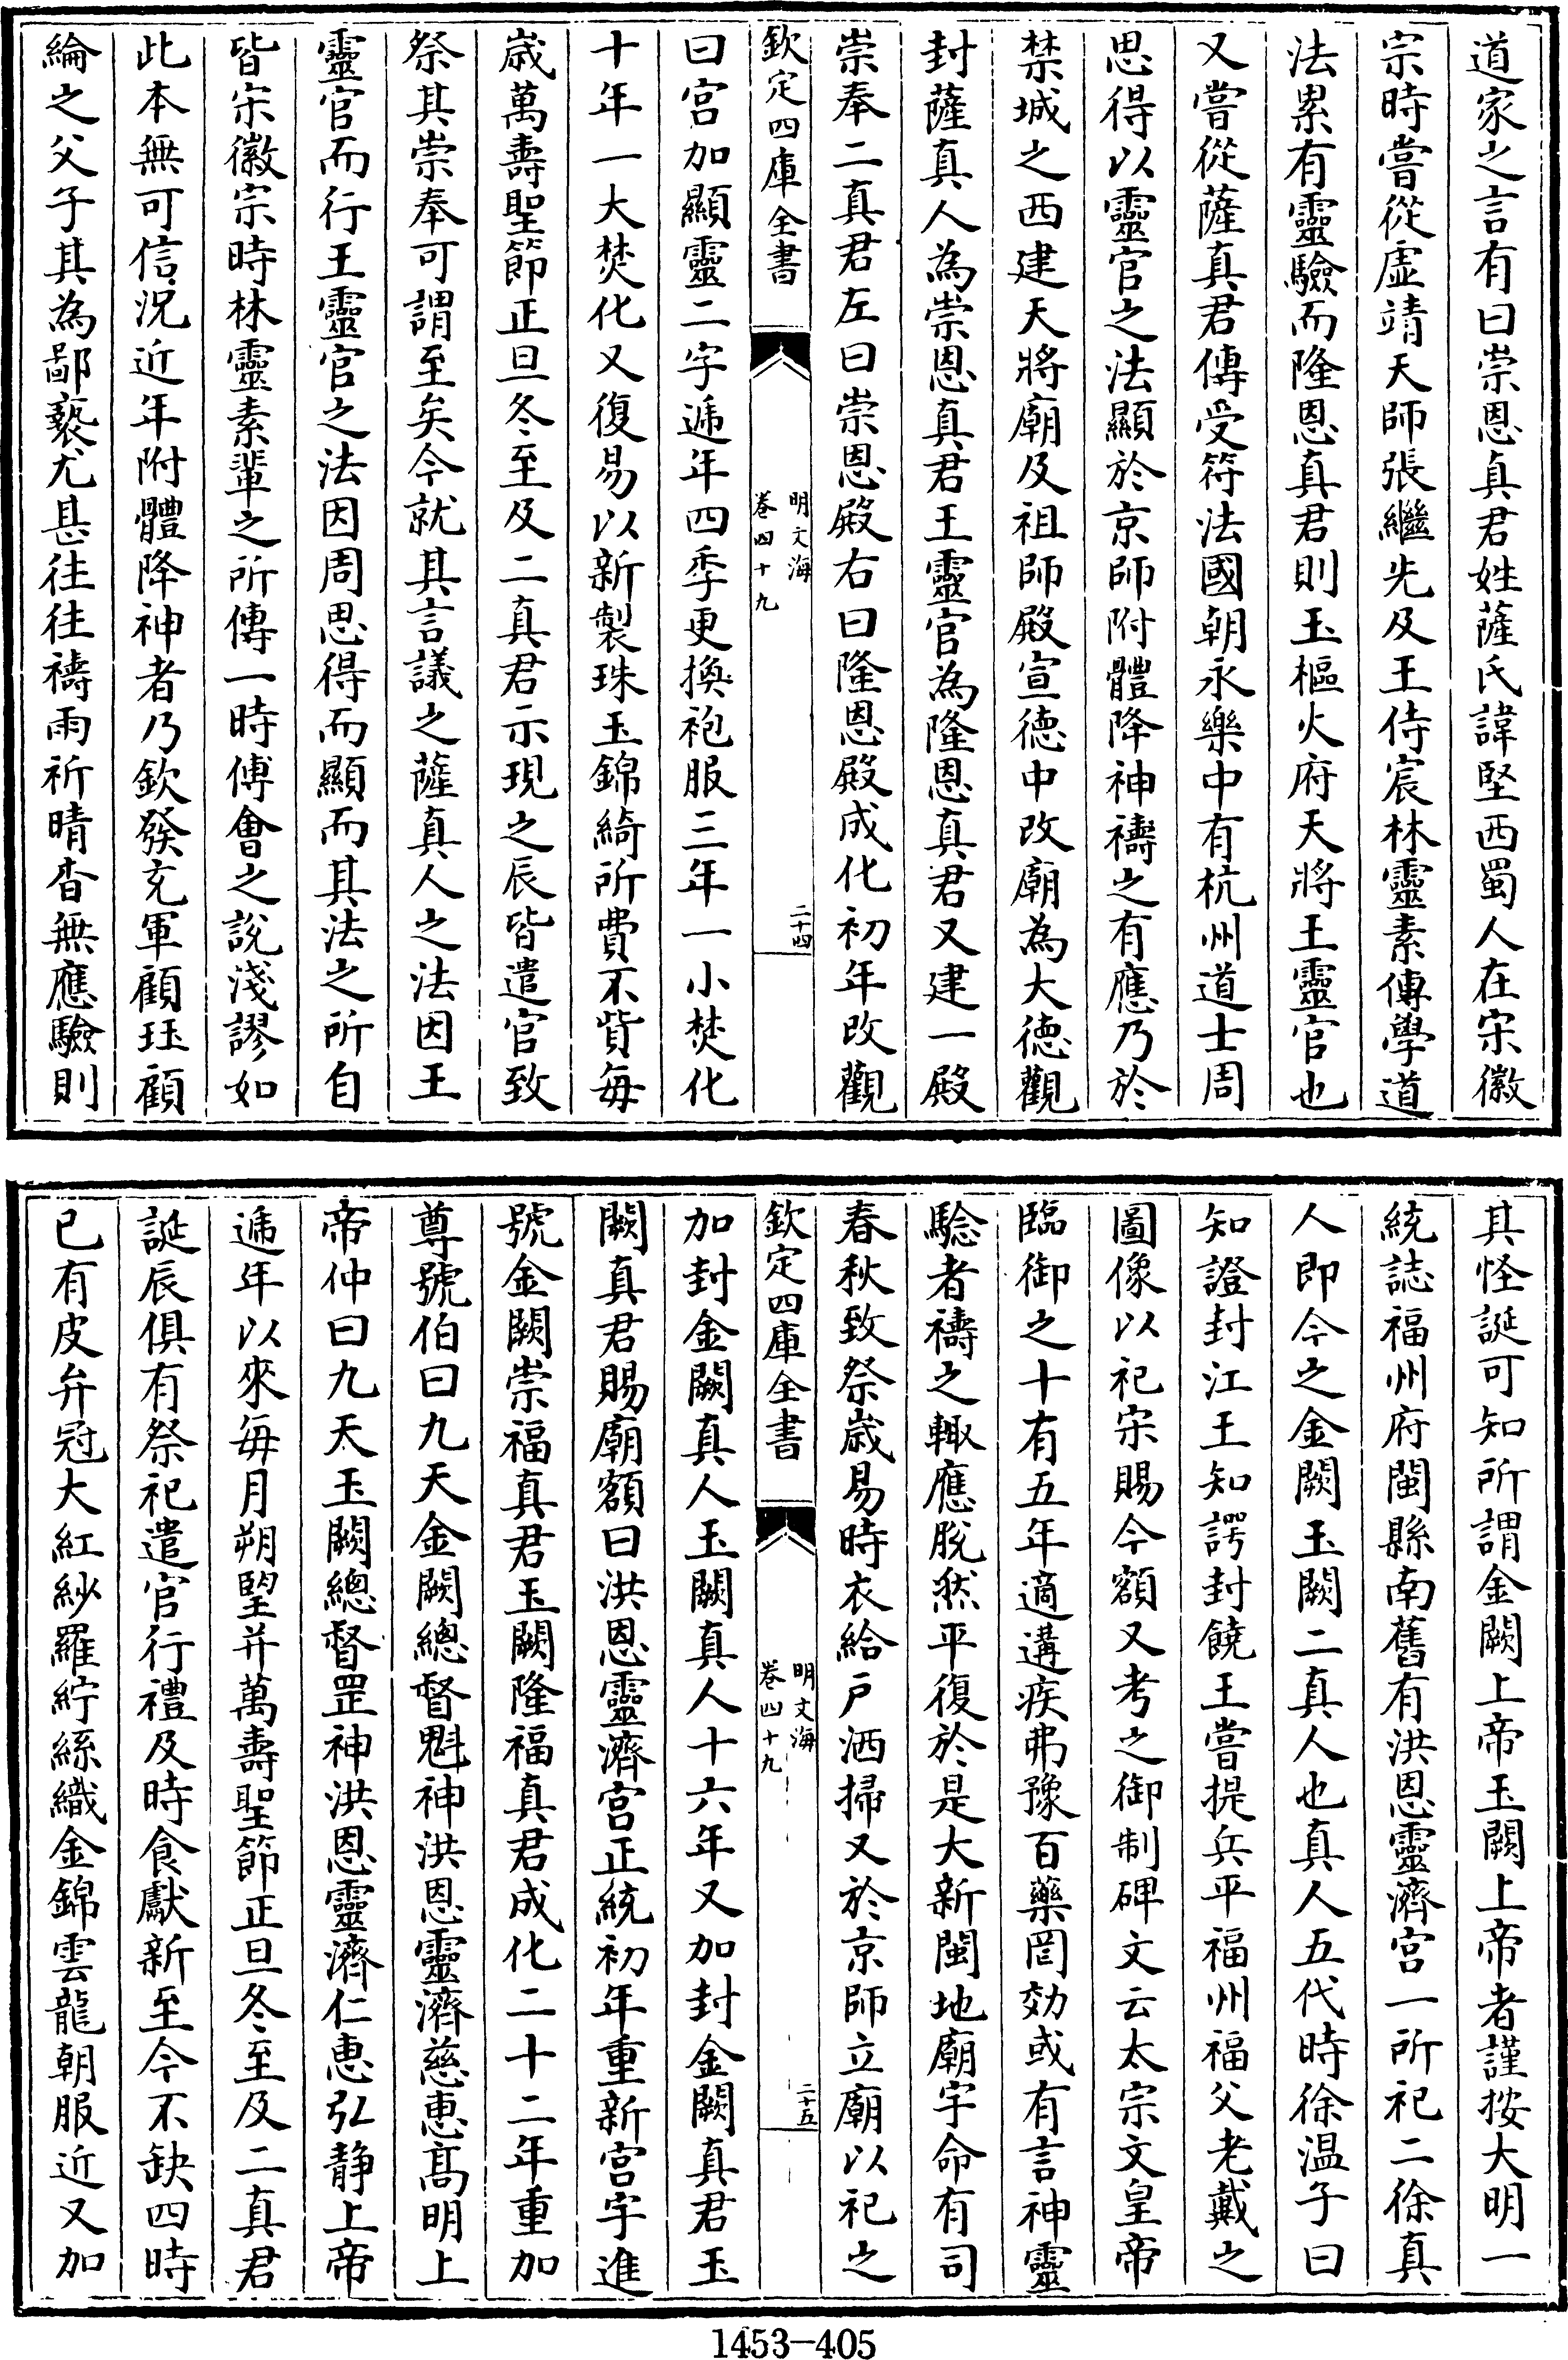 道家之言有曰崇恩真君姓薩氏諱堅西蜀人在宋徽
宗時嘗從虛靖天師張繼先及王侍宸林靈素傳學道
法累有靈驗而隆恩真君則玉樞火府天將王靈官也
又嘗從薩真君傳受符法國朝永樂中有杭州道士周
思得以靈官之法顯於京師附體降神禱之有應乃於
禁城之西建天將廟及祖師殿宣德中改廟為大德觀
封薩真人為崇恩真君王靈官為隆恩真君又建一殿
崇奉二真君左曰崇恩殿右曰隆恩殿成化初年改觀
欽定四庫全書
明文海
卷四十九
二十四
曰宮加顯靈二字遞年四季更換袍服三年一小焚化
十年一大焚化又復易以新製珠玉錦綺所費不貲每
嵗萬壽聖節正旦冬至及二真君示現之辰皆遣官致
祭其崇奉可謂至矣今就其言議之薩真人之法因王
靈官而行王靈官之法因周思得而顯而其法之所自
皆宋徽宗時林靈素輩之所傳一時傅會之說淺謬如
此本無可信況近年附體降神者乃欽發充軍顧珏顧
綸之父子其為鄙褻尤甚往往禱雨祈晴杳無應驗則
其怪誕可知所謂金闕上帝玉闕上帝者謹按大明一
統誌福州府閩縣南舊有洪恩靈濟宮一所祀二徐真
人即今之金闕玉闕二真人也真人五代時徐溫子曰
知證封江王知諤封饒王嘗提兵平福州福父老戴之
圖像以祀宋賜今額又考之御制碑文云太宗文皇帝
臨御之十有五年適遘疾弗豫百藥罔効或有言神靈
驗者禱之輙應脫然平復於是大新閩地廟宇命有司
春秋致祭嵗易時衣給户洒掃又於京師立廟以祀之
欽定四庫全書
明文海
卷四十九
二十五
加封金闕真人玉闕真人十六年又加封金闕真君玉
闕真君賜廟額曰洪恩靈濟宮正統初年重新宮宇進
號金闕崇福真君玉闕隆福真君成化二十二年重加
尊號伯曰九天金闕總督魁神洪恩靈濟慈惠高明上
帝仲曰九天玉闕總督罡神洪恩靈濟仁惠弘静上帝
遞年以來每月朔望并萬壽聖節正旦冬至及二真君
誕辰俱有祭祀遣官行禮及時食獻新至今不缺四時
已有皮弁冠大紅紗羅紵絲織金錦雲龍朝服近又加
1453—405